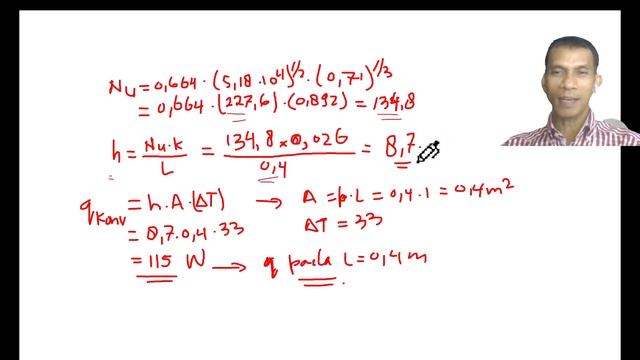 Nu = 0,664 · (5,18 · 10⁴)^1/2 · (0,71)^1/3
= 0,664 · (227,6) · (0,892) = 134,8
h = Nu·k / L = 134,8 x 0,026 / 0,4 = 8,7
qkonv = h.A.(ΔT) → A = p.L = 0,4 . 1 = 0,4 m²
= 8,7 . 0,4 . 33 ΔT = 33
= 115 W → q pada L = 0,4 m